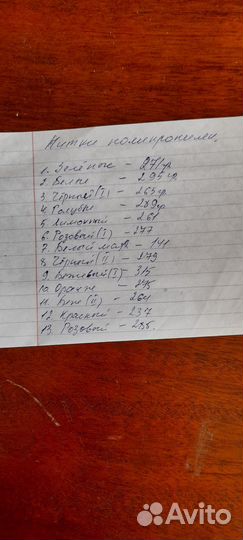 Нитки полипропилен.
1. Зелёные - 271гр
2. Белые - 295гр
3. Чёрный (I) - 265гр
4. Голубые - 289гр
5. Лимонный - 261
6. Розовый (I) - 277
7. Белый мал - 141
8. Чёрный (II) - 279
9. Бежевый (I) - 315
10. Оранж - 295
11. Беж (II) - 264
12. Красный - 237
13. Розовый - 285.
Avito